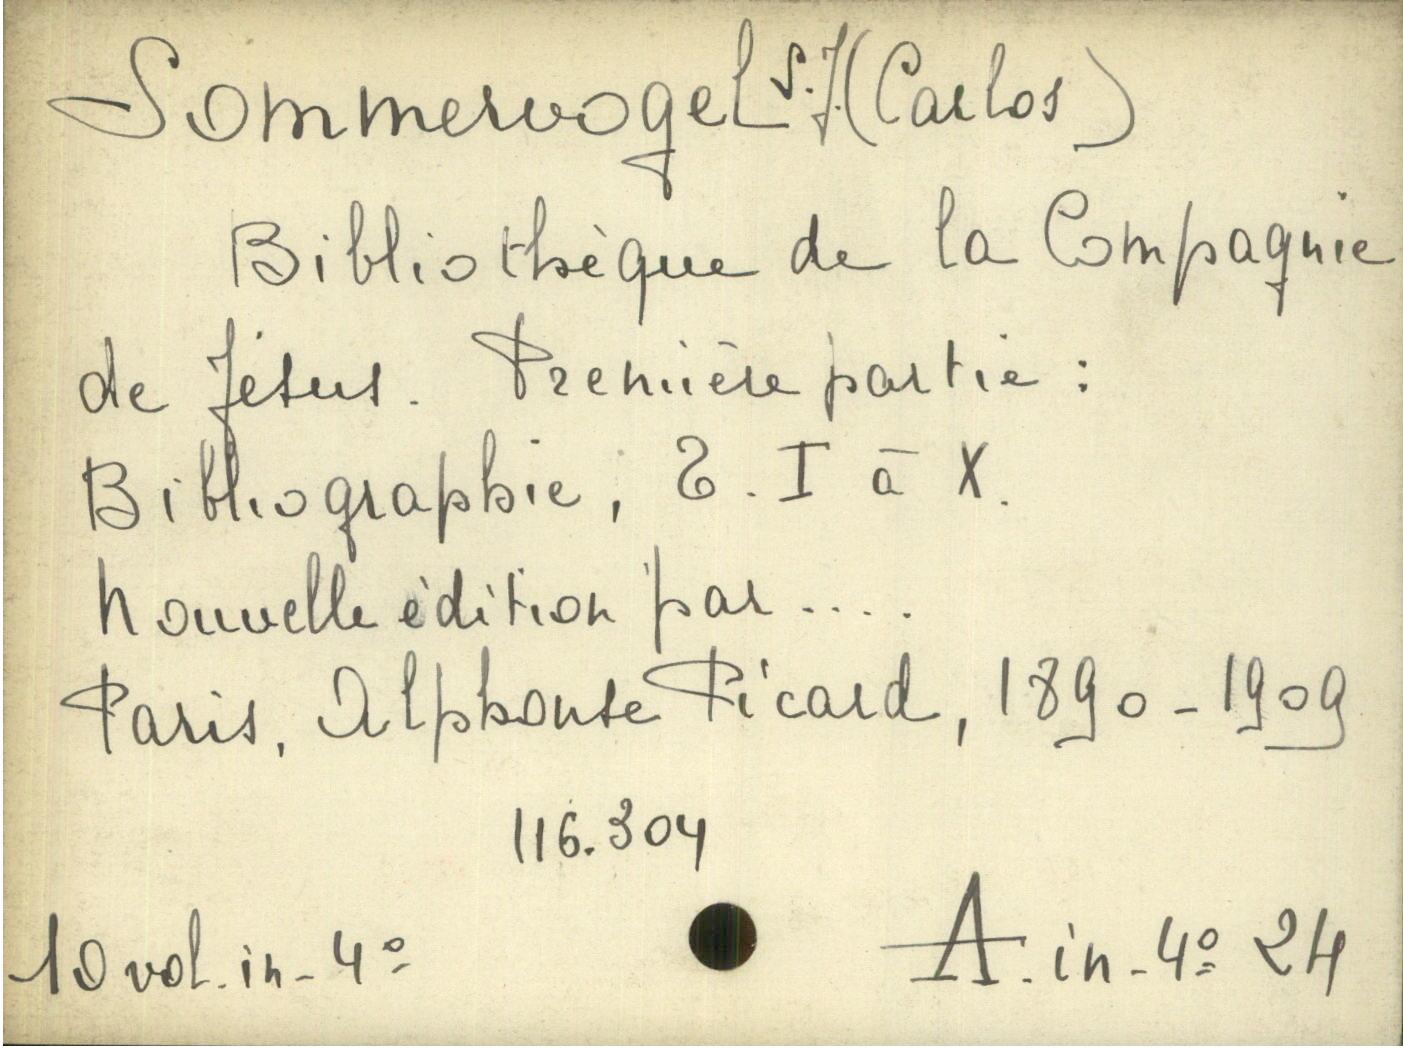 Sommervogel S.J. (Carlos)
Bibliothèque de la Compagnie
de Jésus. Première partie :
Bibliographie, T. I à X.
Nouvelle édition par ....
Paris, Alphonse Picard, 1890-1909
116.304
10 vol. in-4º A. in-4º 24